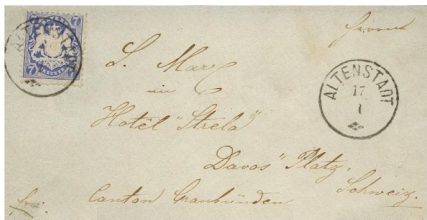 7 7
ALTENSTADT
17
1
S. Marx
in
Hotel "Strela"
Davos "Platz,
Schweiz.
Canton Graubünden
frei.